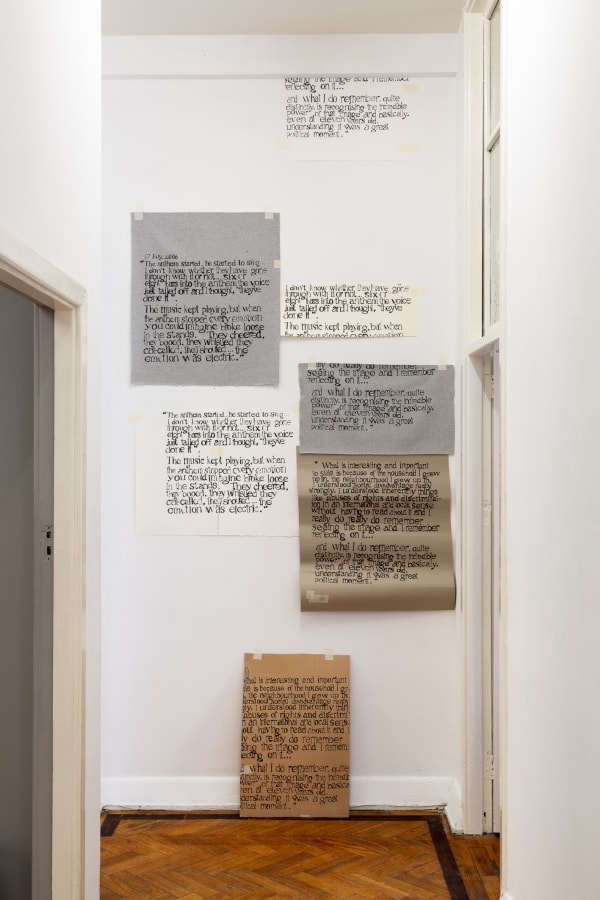 seeing the image and I remember
reflecting on it...
and what I do remember, quite
distinctly, is recognising the incredible
power of that image and basically,
even at eleven years old,
understanding it was a great
political moment."
17 July, 2006
"The anthem started, he started to sing...
I don't know whether they have gone
through with it or not... six or
eight bars into the anthem the voice
just tailed off and I thought, "they've
done it".
The music kept playing, but when
the anthem stopped every emotion
you could imagine broke loose
in the stands. They cheered,
they booed, they whistled they
cat-called, they shouted... the
emotion was electric."
I don't know whether they have gone
through with it or not... six or
eight bars into the anthem the voice
just tailed off and I thought, "they've
done it".
The music kept playing, but when
the anthem stopped every emotion
really do really do remember
seeing the image and I remember
reflecting on it...
and what I do remember, quite
distinctly, is recognising the incredible
power of that image and basically,
even at eleven years old,
understanding it was a great
political moment."
"The anthem started, he started to sing...
I don't know whether they have gone
through with it or not... six or
eight bars into the anthem the voice
just tailed off and I thought, "they've
done it".
The music kept playing, but when
the anthem stopped every emotion
you could imagine broke loose
in the stands. They cheered,
they booed, they whistled they
cat-called, they shouted... the
emotion was electric."
"What is interesting and important
to state is because of the household I grew
up in, the neighbourhood I grew up in,
I understood social disadvantage really
strongly. I understood inherently things
like abuses of rights and discrimination
in an international and local sense
without having to read about it and I
really do really do remember
seeing the image and I remember
reflecting on it...
and what I do remember, quite
distinctly, is recognising the incredible
power of that image and basically,
even at eleven years old,
understanding it was a great
political moment."
What is interesting and important
is because of the household I gr
the neighbourhood I grew up in,
derstood social disadvantage really
I understood inherently thin
abuses of rights and discrimi
in an international and local sens
having to read about it and I
ly do really do remember
eeing the image and I remem
lecting on it...
what I do remember, quite
distinctly, is recognising the incredible
power of that image and basically,
even at eleven years old,
nderstanding it was a great
litical moment."